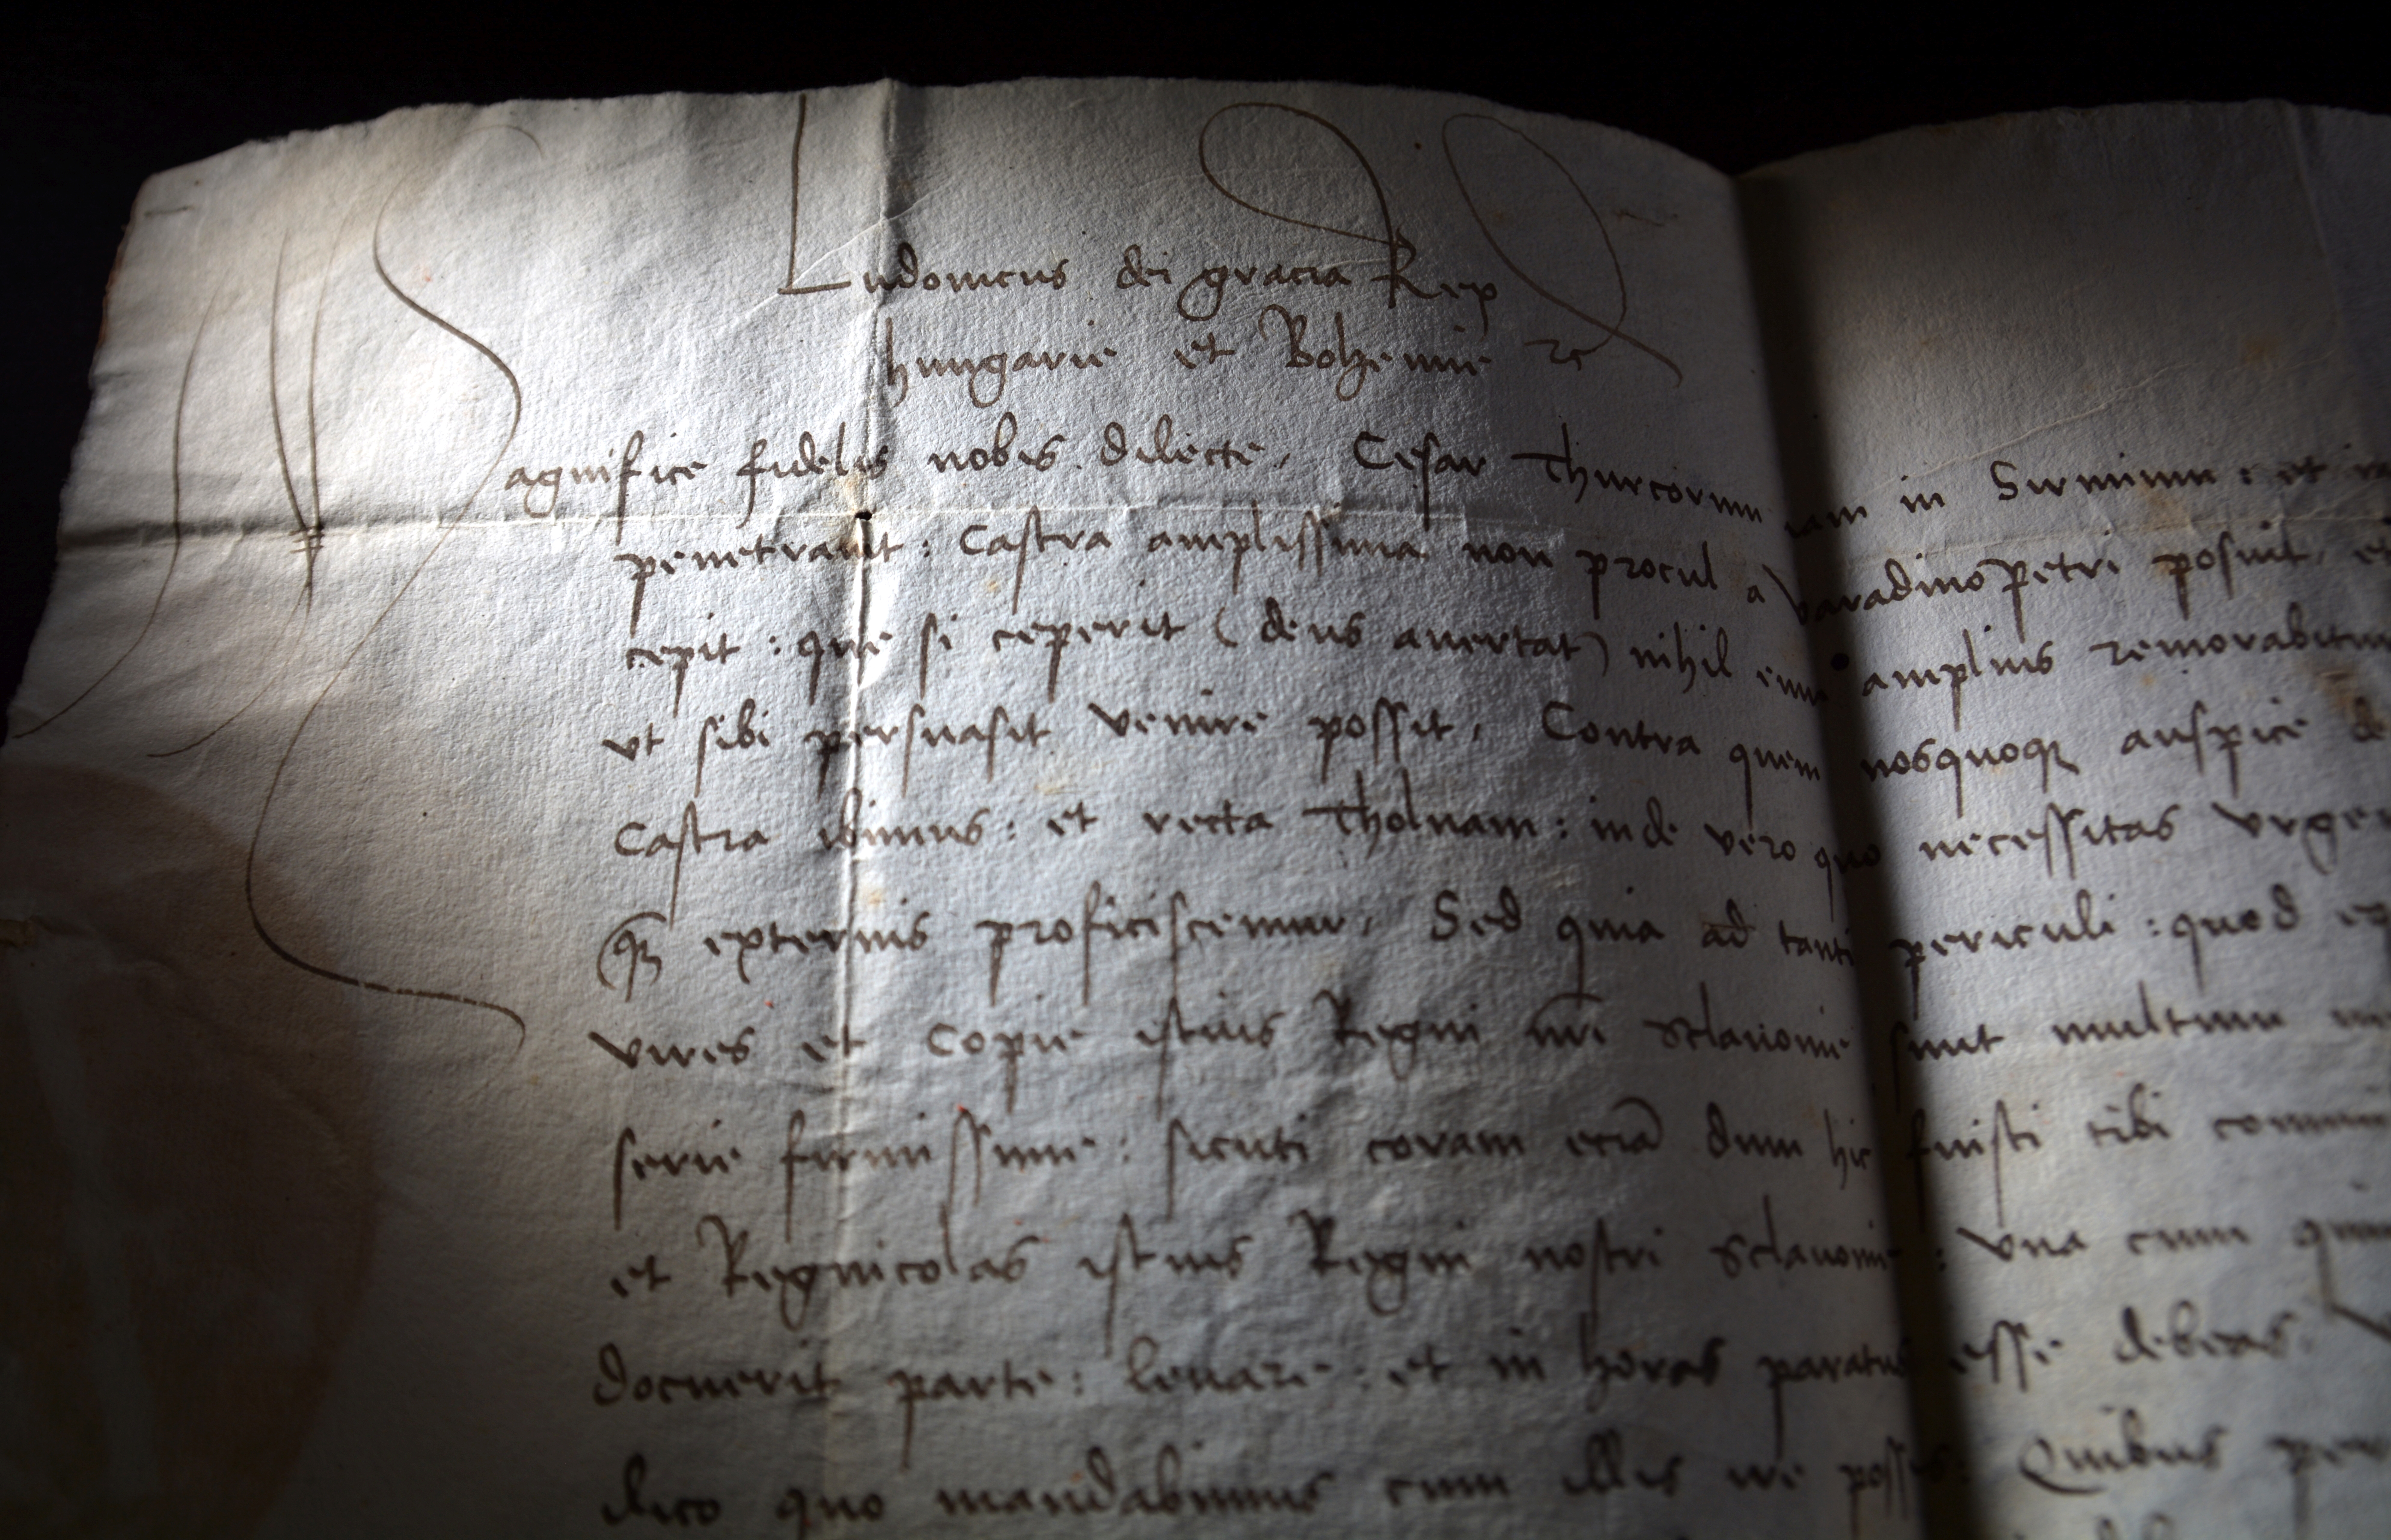 Ludouicus dei gracia Rex
hungarie et Bohemie ꝛc
Magnifice fidelis nobis dilecte, Cesar Thurcorum iam in Sirmium : et
penetrauit : Castra amplissima non procul a Varadino Petri posuit, et
cepit : que si ceperit (deus auertat) nihil eum amplius remorabitur
vt sibi persuasit venire possit, Contra quem nosquoqꝫ auspice de
Castra ibimus : et recta Tholnam : inde vero quo necessitas vrge
(qꝫ externis proficiscemur, Sed quia ad tanti periculi : quod ex
vires et Copie istius Regni nri Sclauonie sunt multum
serie firmissime : sicuti coram eciã dum hic fuisti tibi
et Regnicolas istius Regni nostri Sclauonie : vna cum
docuerit parte : leuare : et in horas paratus esse debeas
ilico quo mandabimus cum illis ire possis : Quibus per